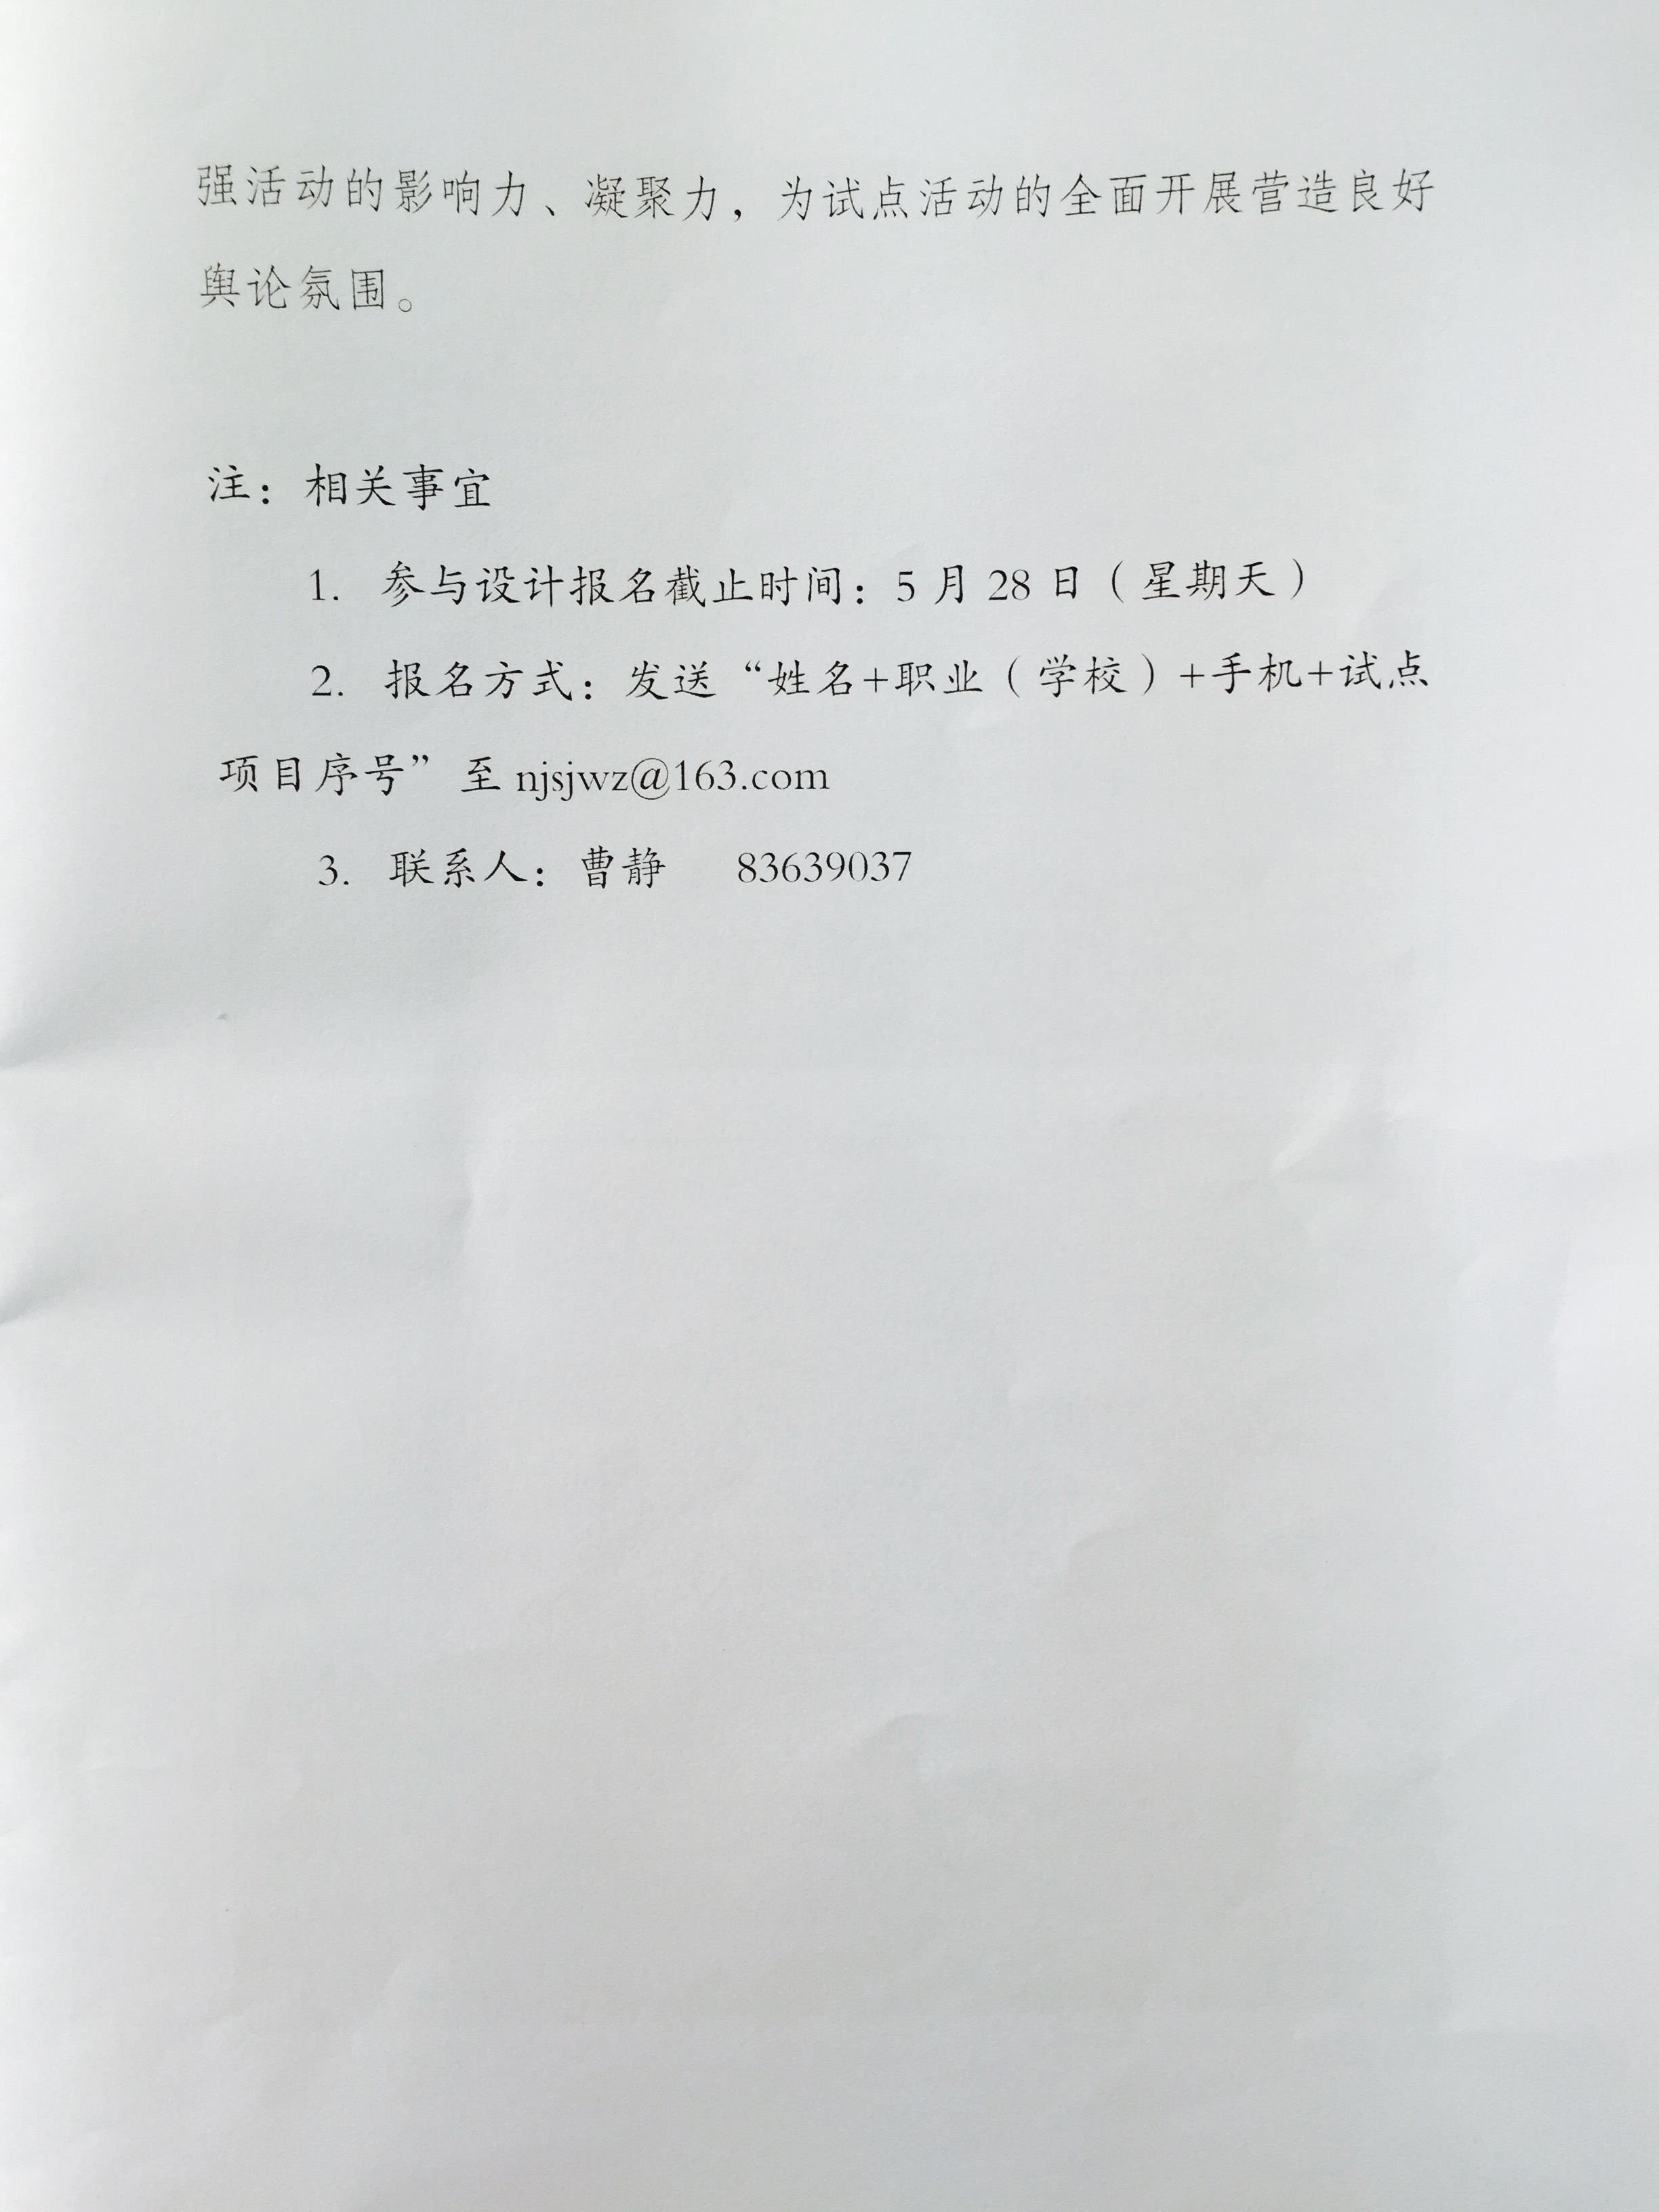 强活动的影响力、凝聚力，为试点活动的全面开展营造良好
舆论氛围。
注：相关事宜
1. 参与设计报名截止时间：5 月 28 日（星期天）
2. 报名方式：发送“姓名+职业（学校）+手机+试点
项目序号” 至 njsjwz@163.com
3. 联系人：曹静 83639037